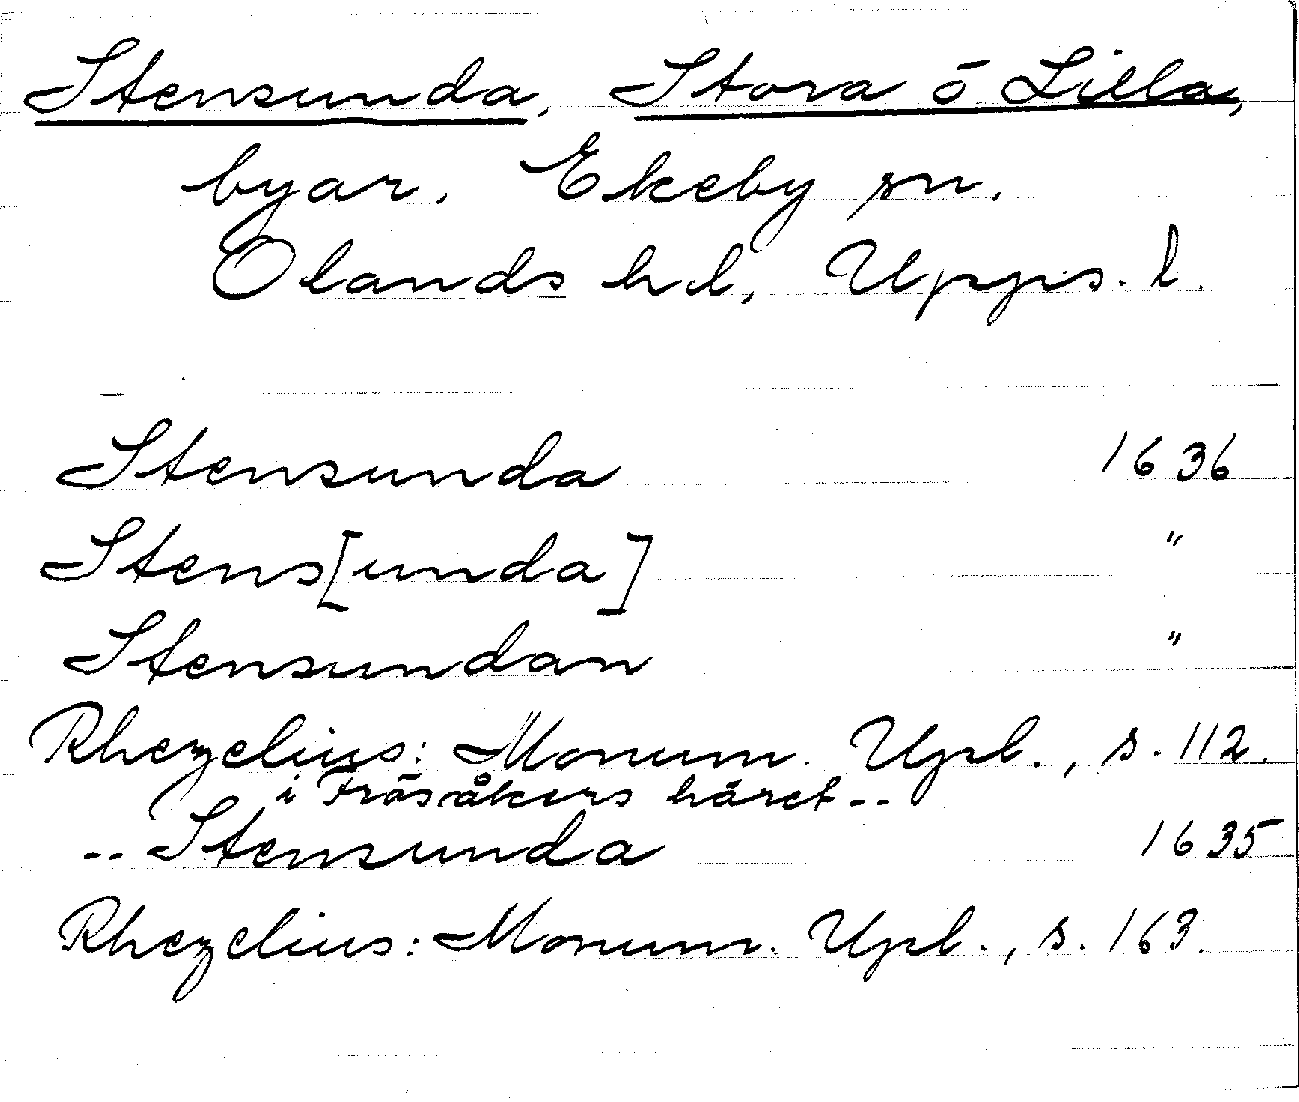 Stensunda, Stora o Lilla,
byar. Ekeby sn.
Olands hd, Upps. l.
Stensunda 1636
Stens[unda] "
Stensundan "
Rhezelius: Monum. Upl., s. 112.
i Frösåkers häret --
-- Stensunda 1635
Rhezelius: Monum. Upl., s. 163.